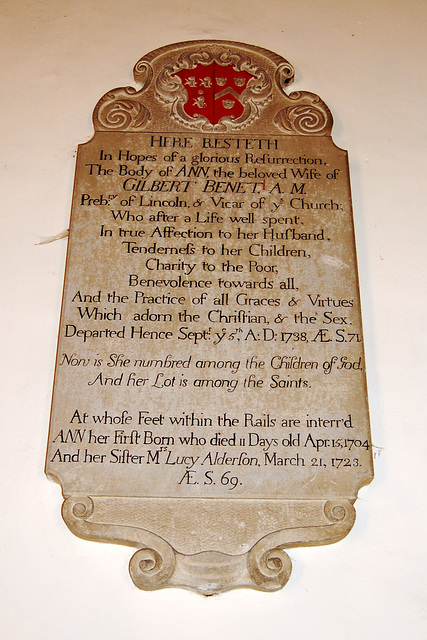 HERE RESTETH
In Hopes of a glorious Reſurrection,
The Body of ANN the beloved Wife of
GILBERT BENET, A. M.
Preb:ʳʸ of Lincoln, & Vicar of yᵉ Church;
Who after a Life well spent,
In true Affection to her Huſband,
Tenderneſs to her Children,
Charity to the Poor,
Benevolence towards all,
And the Practice of all Graces & Virtues
Which adorn the Chriſtian, & the Sex.
Departed Hence Septᵗ yᵉ 5ᵗʰ A: D: 1738, Æ. S. 71.
Now is She numbred among the Children of God,
And her Lot is among the Saints.
At whoſe Feet within the Rails are interr'd
ANN her Firſt Born who died 11 Days old Apr. 15, 1704
And her Siſter Mʳˢ Lucy Alderſon, March 21, 1723.
Æ. S. 69.